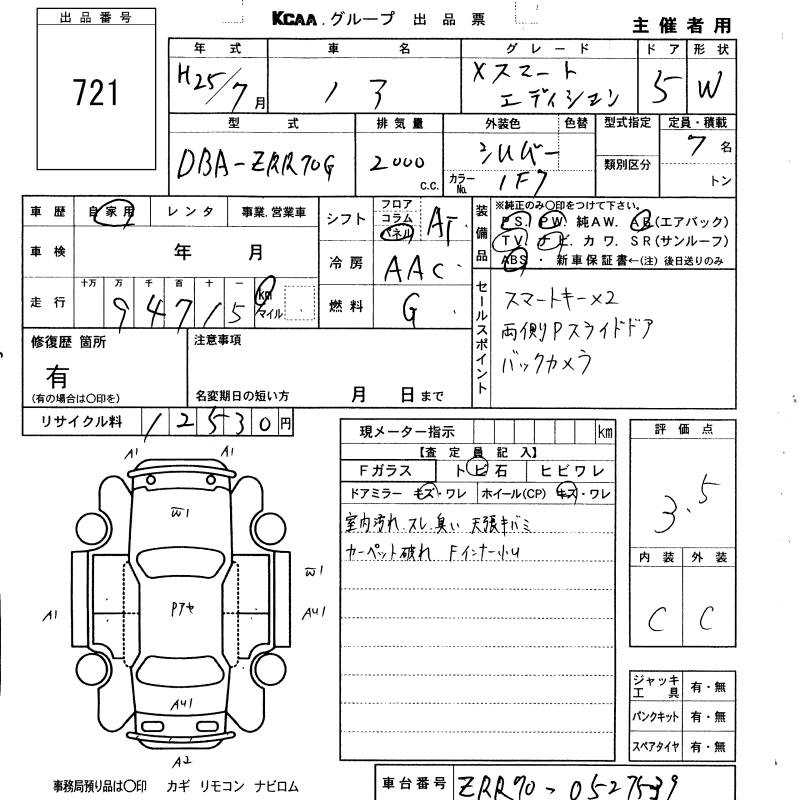 KCAA.グループ 出品票
主催者用
出品番号
721
年式 車名 グレード ドア 形状
H25/7月 ノア Xスマートエディション 5 W
型式 排気量 外装色 色替 型式指定 定員・積載
DBA-ZRR70G 2000 c.c. シルバー 7名
カラーNo. 1F7 類別区分 トン
車歴 自家用 レンタ 事業.営業車
車検 年 月
走行 十万 万 千 百 十 一 km マイル
94715
シフト フロア コラム パネル AT
冷房 AAC
燃料 G
装備品
※純正のみ〇印をつけて下さい。
PS. PW. 純AW. AB(エアバック)
TV. ナビ. カワ. SR(サンルーフ)
ABS・ 新車保証書←(注)後日送りのみ
セールスポイント
スマートキー×2
両側Pスライドドア
バックカメラ
修復歴 箇所
有
(有の場合は〇印を)
注意事項
名変期日の短い方 月 日まで
リサイクル料 12530円
現メーター指示 km
【査定員記入】
Fガラス トビ石 ヒビワレ
ドアミラー キズ・ワレ ホイール(CP) キズ・ワレ
室内汚れ.スレ.臭い 天張キバミ
カーペット破れ Fインナー小U
評価点
3.5
内装 外装
C C
ジャッキ工具 有・無
パンクキット 有・無
スペアタイヤ 有・無
A1 A1
W1
W1
A1 Pアセ AU1
AU1
A2
事務局預り品は〇印 カギ リモコン ナビロム
車台番号 ZRR70-0527539